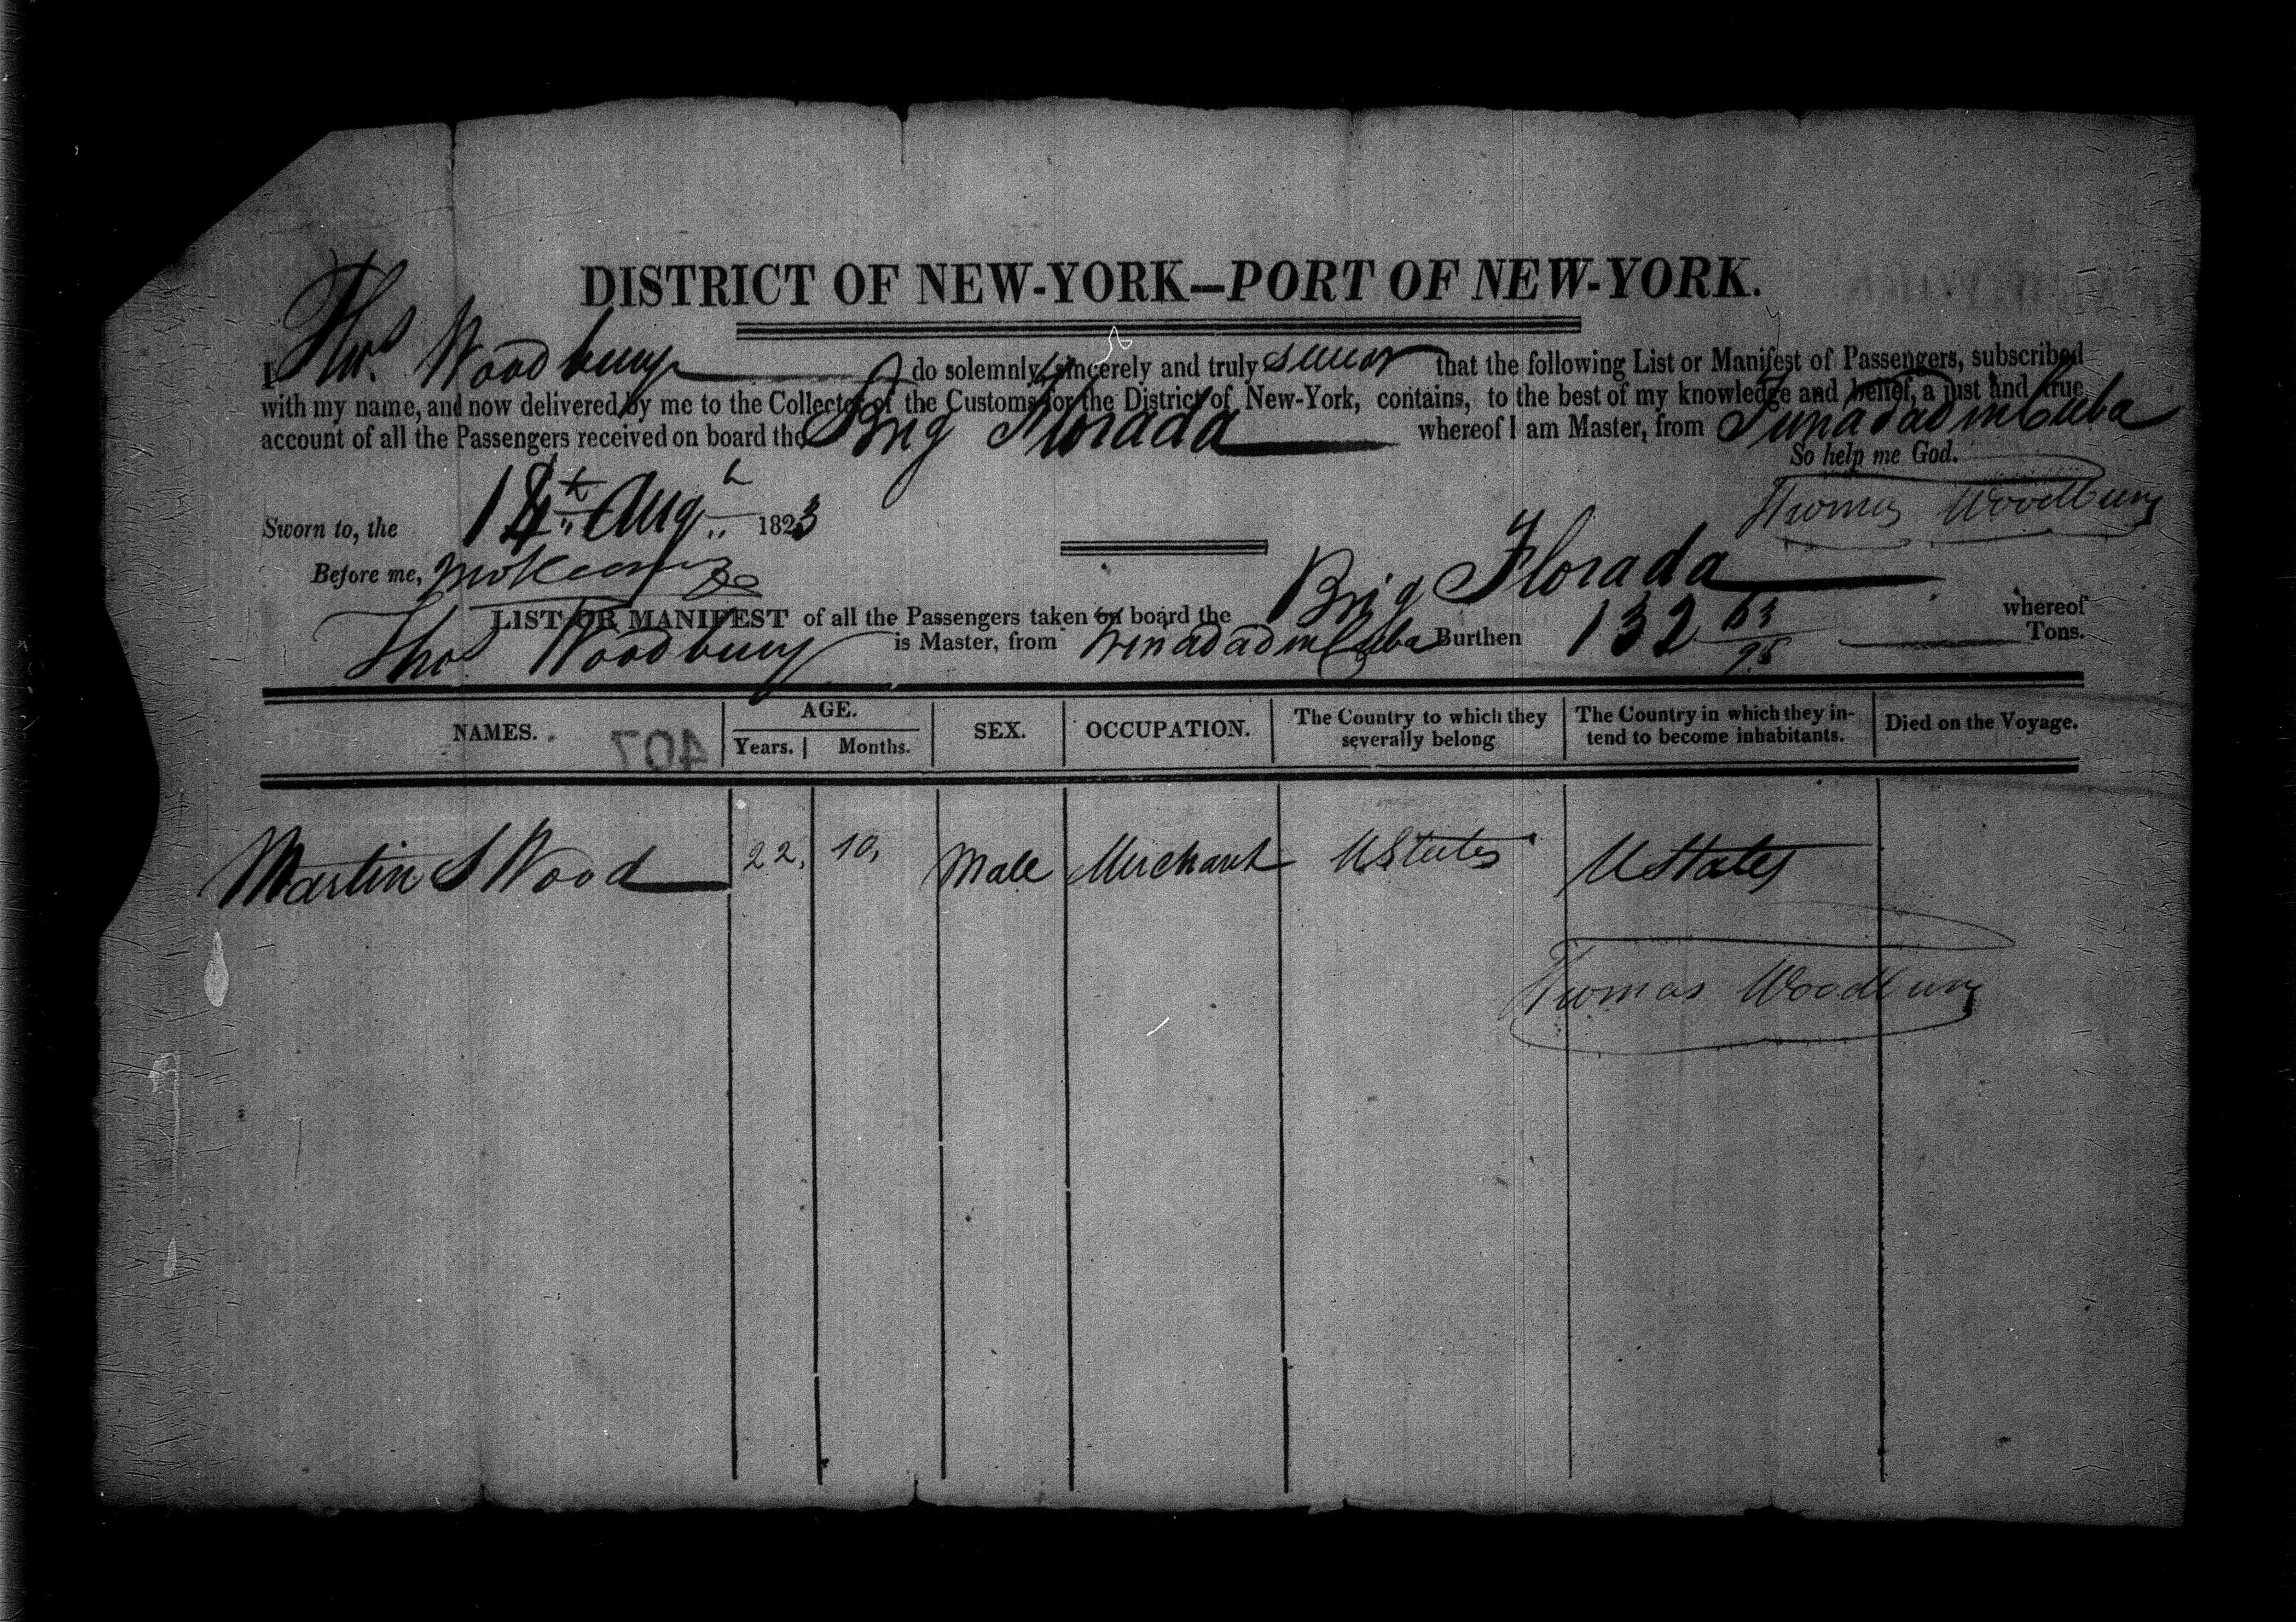 DISTRICT OF NEW-YORK—PORT OF NEW-YORK.
I Thos. Woodbury do solemnly, sincerely and truly swear that the following List or Manifest of Passengers, subscribed
with my name, and now delivered by me to the Collector of the Customs for the District of New-York, contains, to the best of my knowledge and belief, a just and true
account of all the Passengers received on board the Brig Florada whereof I am Master, from Trinadad in Cuba
So help me God.
Thomas Woodbury
Sworn to, the 14th Augt 1823
Before me,
LIST OR MANIFEST of all the Passengers taken on board the Brig Florada whereof
Thos Woodbury is Master, from Trinadad in Cuba Burthen 132 63/95 Tons.
NAMES. AGE. SEX. OCCUPATION. The Country to which they severally belong The Country in which they intend to become inhabitants. Died on the Voyage.
Years. Months.
407
Martin S Wood 22, 10, Male Merchant U States U States
Thomas Woodbury